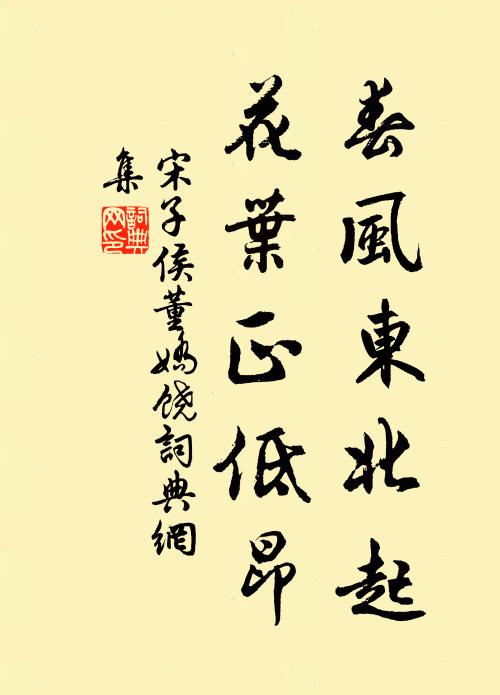 春風東北起
花葉正低昂
宋子侯董嬌饒詞典網
集
詞典
网印